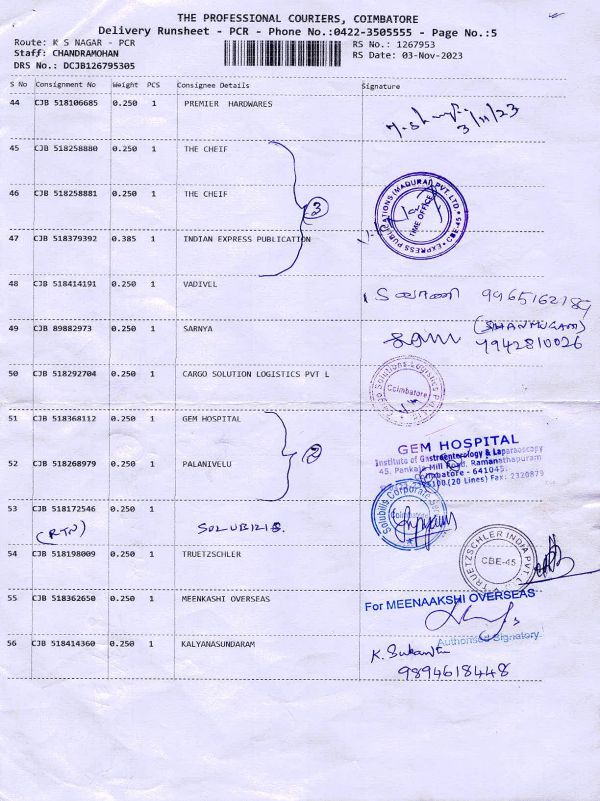 THE PROFESSIONAL COURIERS, COIMBATORE
Delivery Runsheet - PCR - Phone No.:0422-3505555 - Page No.:5
Route: K S NAGAR - PCR
RS No.: 1267953
Staff: CHANDRAMOHAN
RS Date: 03-Nov-2023
DRS No.: DCJB126795305
S No Consignment No Weight PCS Consignee Details Signature
44 CJB 518106685 0.250 1 PREMIER HARDWARES
3/11/23
45 CJB 518258880 0.250 1 THE CHEIF
46 CJB 518258881 0.250 1 THE CHEIF
3
EXPRESS PUBLICATIONS (MADURAI) PVT. LTD. * CBE-45 *
TIME OFFICE
47 CJB 518379392 0.385 1 INDIAN EXPRESS PUBLICATION
48 CJB 518414191 0.250 1 VADIVEL
9965162189
49 CJB 89882973 0.250 1 SARNYA
(SHANMUGAM)
7942810026
50 CJB 518292704 0.250 1 CARGO SOLUTION LOGISTICS PVT L
Cargo Solutions Logistics
Coimbatore
51 CJB 518368112 0.250 1 GEM HOSPITAL
2
GEM HOSPITAL
Institute of Gastroenterology & Laparaoscopy
45, Pankaja Mill Road, Ramanathapuram
Coimbatore - 641045.
100 (20 Lines) Fax: 2320879
52 CJB 518268979 0.250 1 PALANIVELU
53 CJB 518172546 0.250 1
(RTN) SOLUBILIS.
Solubilis Corporate
Coimbatore
54 CJB 518198009 0.250 1 TRUETZSCHLER
TRUETZSCHLER INDIA PVT.
CBE-45
55 CJB 518362650 0.250 1 MEENKASHI OVERSEAS
For MEENAAKSHI OVERSEAS
Authorised Signatory
56 CJB 518414360 0.250 1 KALYANASUNDARAM
K. Sukantha
9894618448